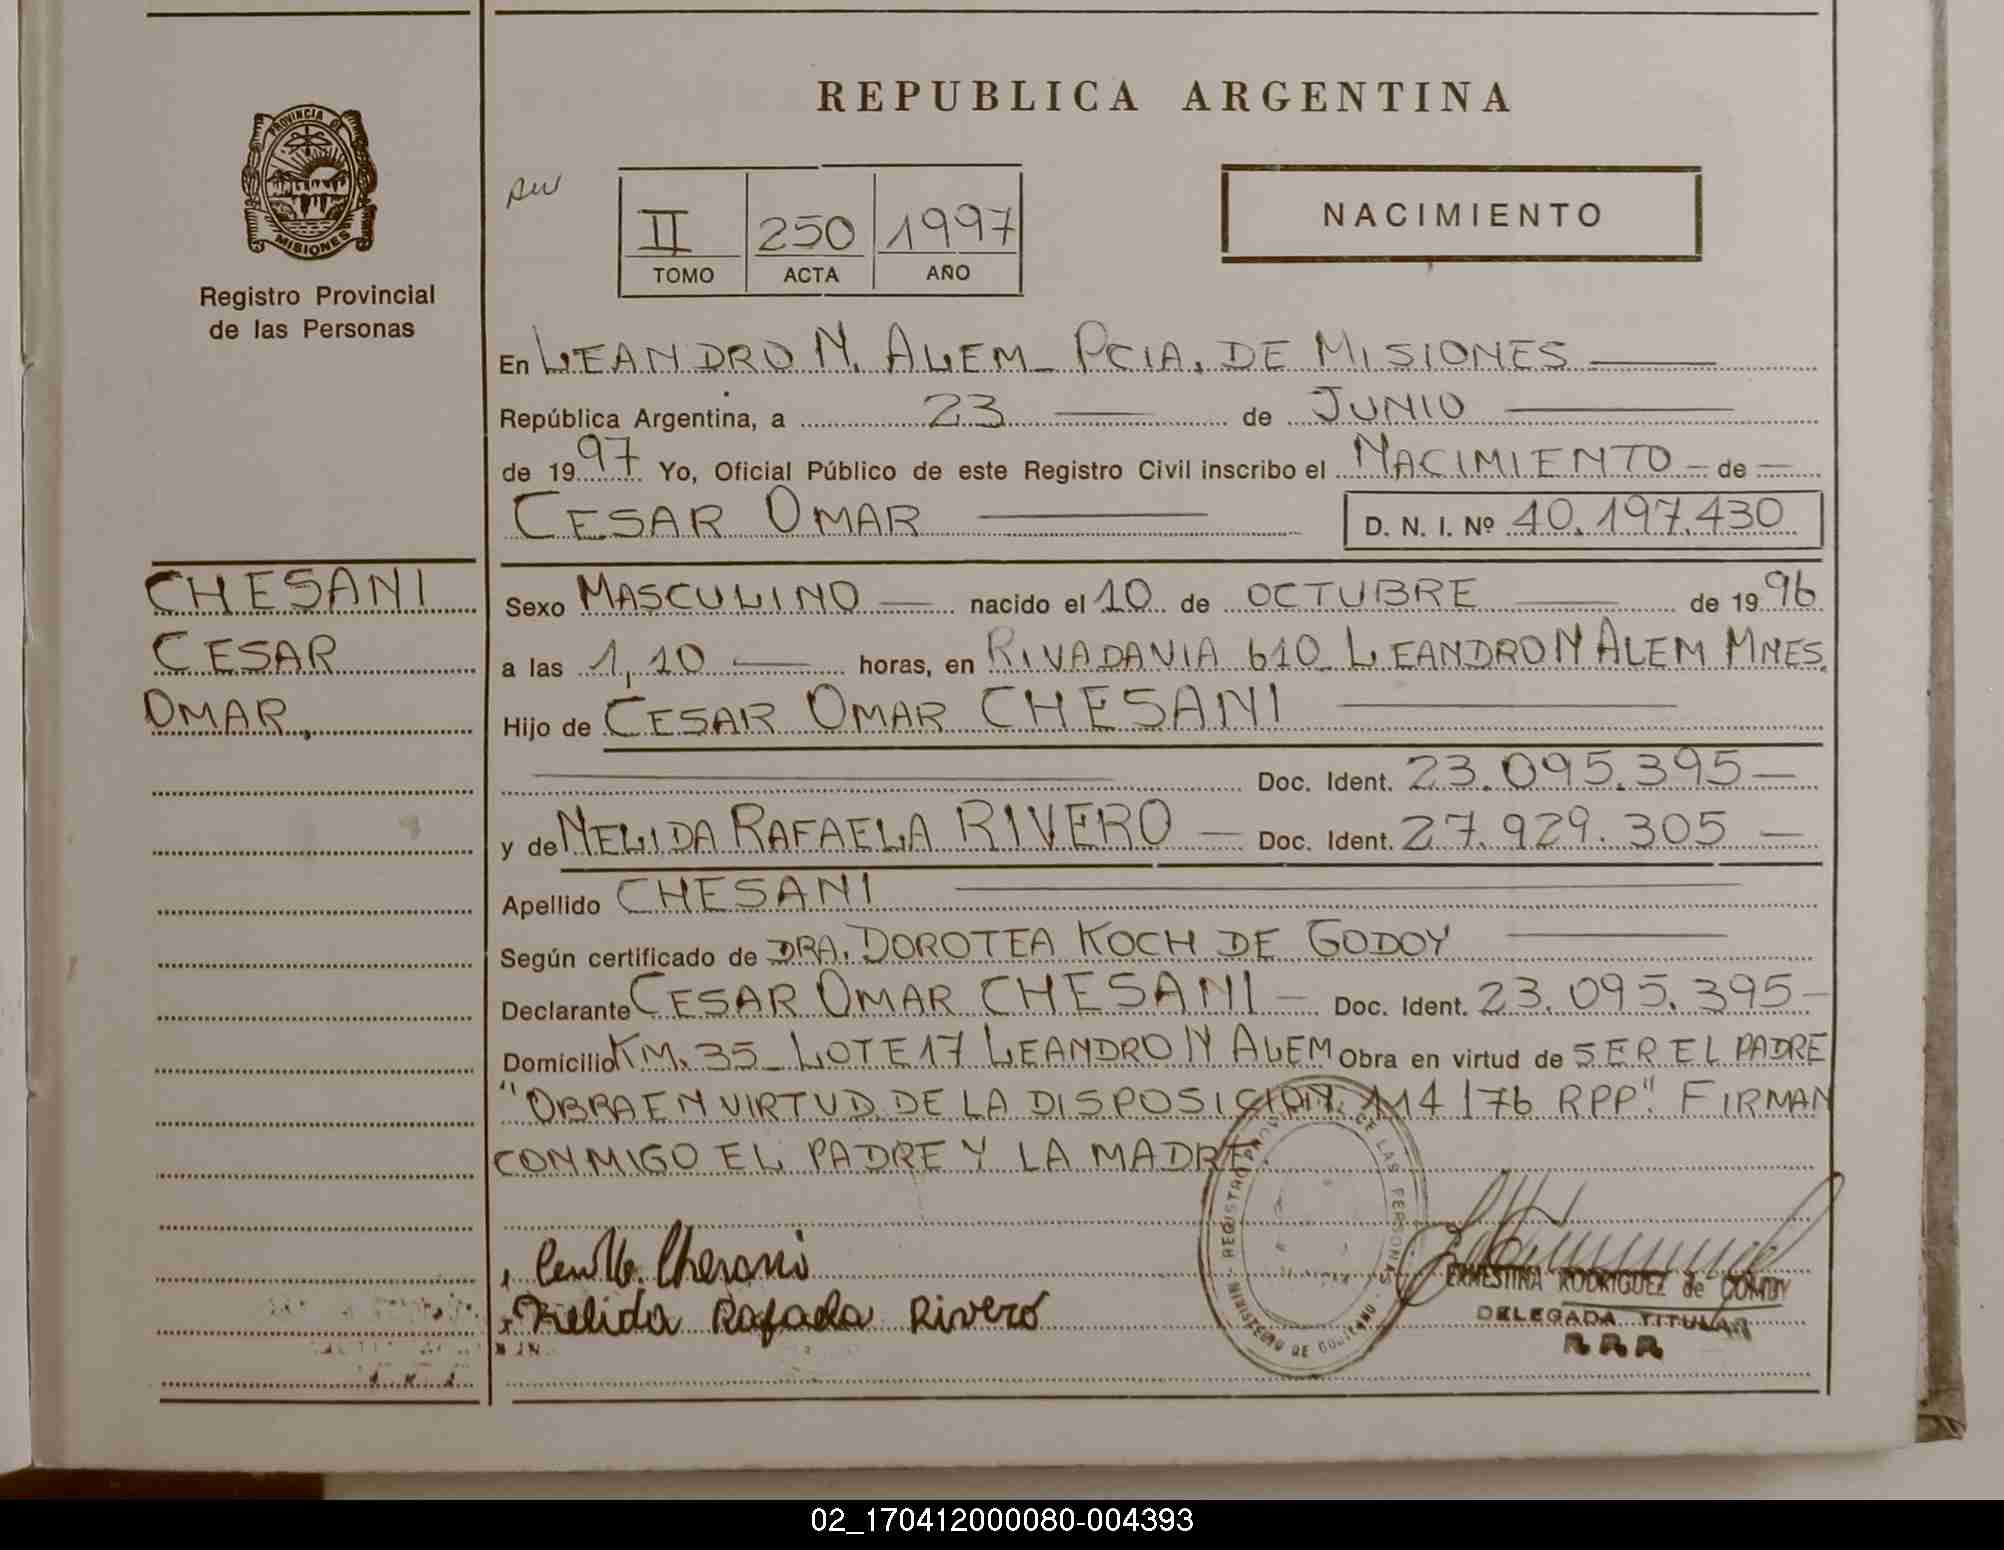 REPUBLICA ARGENTINA
PROVINCIA DE
MISIONES
Registro Provincial
de las Personas
II 250 1997
TOMO ACTA AÑO
NACIMIENTO
En LEANDRO N. ALEM_ PCIA. DE MISIONES
República Argentina, a 23 de JUNIO
de 1997 Yo, Oficial Público de este Registro Civil inscribo el NACIMIENTO de
CESAR OMAR D. N. I. Nº 40.197.430
CHESANI
CESAR
OMAR
Sexo MASCULINO nacido el 10 de OCTUBRE de 1996
a las 1,10 horas, en RIVADAVIA 610_ LEANDRO N ALEM MNES.
Hijo de CESAR OMAR CHESANI
Doc. Ident. 23.095.395
y de NELIDA RAFAELA RIVERO Doc. Ident. 27.929.305
Apellido CHESANI
Según certificado de DRA. DOROTEA KOCH DE GODOY
Declarante CESAR OMAR CHESANI Doc. Ident. 23.095.395
Domicilio KM. 35_ LOTE 17 LEANDRO N ALEM Obra en virtud de SER EL PADRE
"OBRA EN VIRTUD DE LA DISPOSICION 114/76 RPP". FIRMAN
CONMIGO EL PADRE Y LA MADRE.
Chesani
Nelida Rafaela Rivero
REGISTRO DE LAS PERSONAS
MINISTERIO DE GOBIERNO
ERNESTINA RODRIGUEZ de
DELEGADA TITULAR
02_170412000080-004393